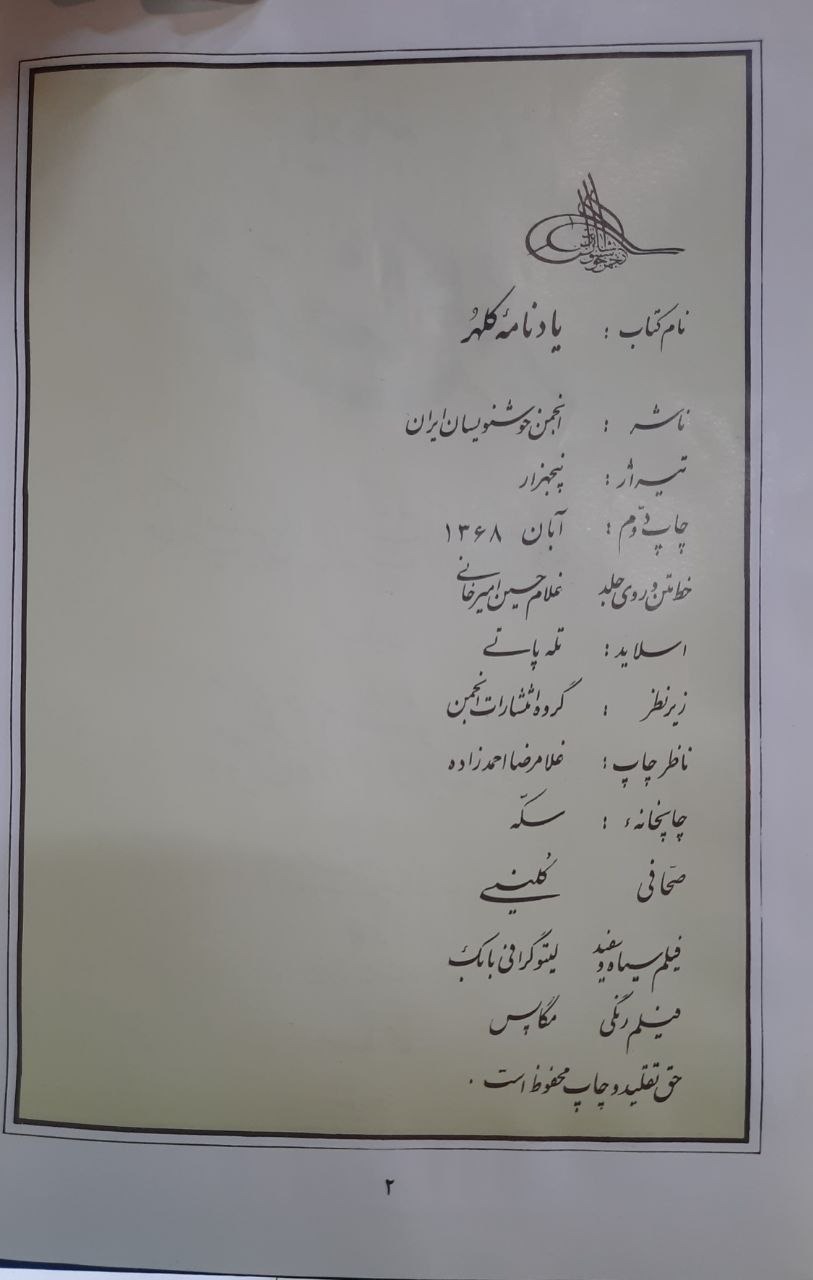 نام کتاب : یادنامهٔ کلهُر
ناشر : انجمن خوشنویسان ایران
تیراژ : پنجهزار
چاپ دوّم : آبان ۱۳۶۸
خط متن و روی جلد غلامحسین امیرخانی
اسلاید : تله پاتی
زیر نظر : گروه انتشارات انجمن
ناظر چاپ : غلامرضا احمدزاده
چاپخانهٔ : سکّه
صحّافی کُلینی
فیلم سیاه و سفید لیتوگرافی بانک
فیلم رنگی مگاپس
حق تقلید و چاپ محفوظ است .
۲